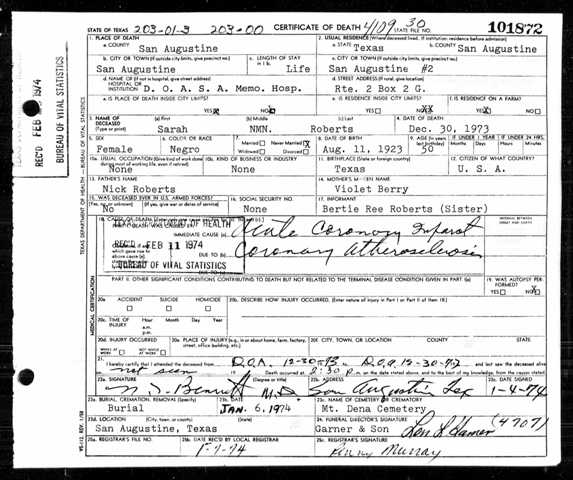 STATE OF TEXAS 203-01-3 203-00 CERTIFICATE OF DEATH 4109 30 STATE FILE NO. 101872
1. PLACE OF DEATH 2. USUAL RESIDENCE (Where deceased lived. If institution: residence before admission)
a. COUNTY San Augustine a. STATE Texas b. COUNTY San Augustine
b. CITY OR TOWN (If outside city limits, give precinct no.) c. LENGTH OF STAY in 1b. c. CITY OR TOWN (If outside city limits, give precinct no.)
San Augustine Life San Augustine #2
d. NAME OF (If not in hospital, give street address) HOSPITAL OR INSTITUTION d. STREET ADDRESS (If rural, give location)
D. O. A. S. A. Memo. Hosp. Rte. 2 Box 2 G.
e. IS PLACE OF DEATH INSIDE CITY LIMITS? e. IS RESIDENCE INSIDE CITY LIMITS? f. IS RESIDENCE ON A FARM?
YES NO YES NO YES NO
3. NAME OF DECEASED (Type or print) (a) First (b) Middle (c) Last 4. DATE OF DEATH
Sarah NMN. Roberts Dec. 30, 1973
5. SEX 6. COLOR OR RACE 7. Married Never Married Widowed Divorced 8. DATE OF BIRTH 9. AGE (In years last birthday) IF UNDER 1 YEAR Months Days IF UNDER 24 HRS. Hours Minutes
Female Negro Aug. 11, 1923 50
10a. USUAL OCCUPATION (Give kind of work done during most of working life, even if retired) 10b. KIND OF BUSINESS OR INDUSTRY 11. BIRTHPLACE (State or foreign country) 12. CITIZEN OF WHAT COUNTRY?
None None Texas U. S. A.
13. FATHER'S NAME 14. MOTHER'S MAIDEN NAME
Nick Roberts Violet Berry
15. WAS DECEASED EVER IN U.S. ARMED FORCES? (Yes, no, or unknown) (If yes, give war or dates of service) 16. SOCIAL SECURITY NO. 17. INFORMANT
No None Bertie Ree Roberts (Sister)
18. CAUSE OF DEATH INTERVAL BETWEEN ONSET AND DEATH
DEPARTMENT OF HEALTH
IMMEDIATE CAUSE (a) Acute Coronary Infarct
REC'D FEB 11 1974
DUE TO (b) Coronary Atherosclerosis
BUREAU OF VITAL STATISTICS
DUE TO (c)
PART II. OTHER SIGNIFICANT CONDITIONS CONTRIBUTING TO DEATH BUT NOT RELATED TO THE TERMINAL DISEASE CONDITION GIVEN IN PART I(a) 19. WAS AUTOPSY PERFORMED? YES NO
20a. ACCIDENT SUICIDE HOMICIDE 20b. DESCRIBE HOW INJURY OCCURRED. (Enter nature of injury in Part I or Part II of item 18)
20c. TIME OF INJURY Hour Month Day Year a.m. p.m.
20d. INJURY OCCURRED WHILE AT WORK NOT WHILE AT WORK 20e. PLACE OF INJURY (e.g., in or about home, farm, factory, street, office building, etc.) 20f. CITY, TOWN, OR LOCATION COUNTY STATE
21. I hereby certify that I attended the deceased from D.O.A. 12-30-73 to D.O.A. 12-30-73 and last saw the deceased alive
on not seen Death occurred at 2:30 P.m. on the date stated above, and to the best of my knowledge, from the causes stated.
22a. SIGNATURE (Degree or title) M.D. 22b. ADDRESS San Augustine Tex 22c. DATE SIGNED 1-4-74
23a. BURIAL, CREMATION, REMOVAL (Specify) 23b. DATE 23c. NAME OF CEMETERY OR CREMATORY
Burial JAN. 6, 1974 Mt. Dena Cemetery
23d. LOCATION (City, town, or county) (State) 24. FUNERAL DIRECTOR'S SIGNATURE (4707)
San Augustine, Texas Garner & Son
25a. REGISTRAR'S FILE NO. 25b. DATE REC'D BY LOCAL REGISTRAR 25c. REGISTRAR'S SIGNATURE
Murray
TEXAS DEPARTMENT OF HEALTH — BUREAU OF VITAL STATISTICS
MEDICAL CERTIFICATION
VS-112, REV. 1/58
1974
REC'D FEB
BUREAU OF VITAL STATISTICS